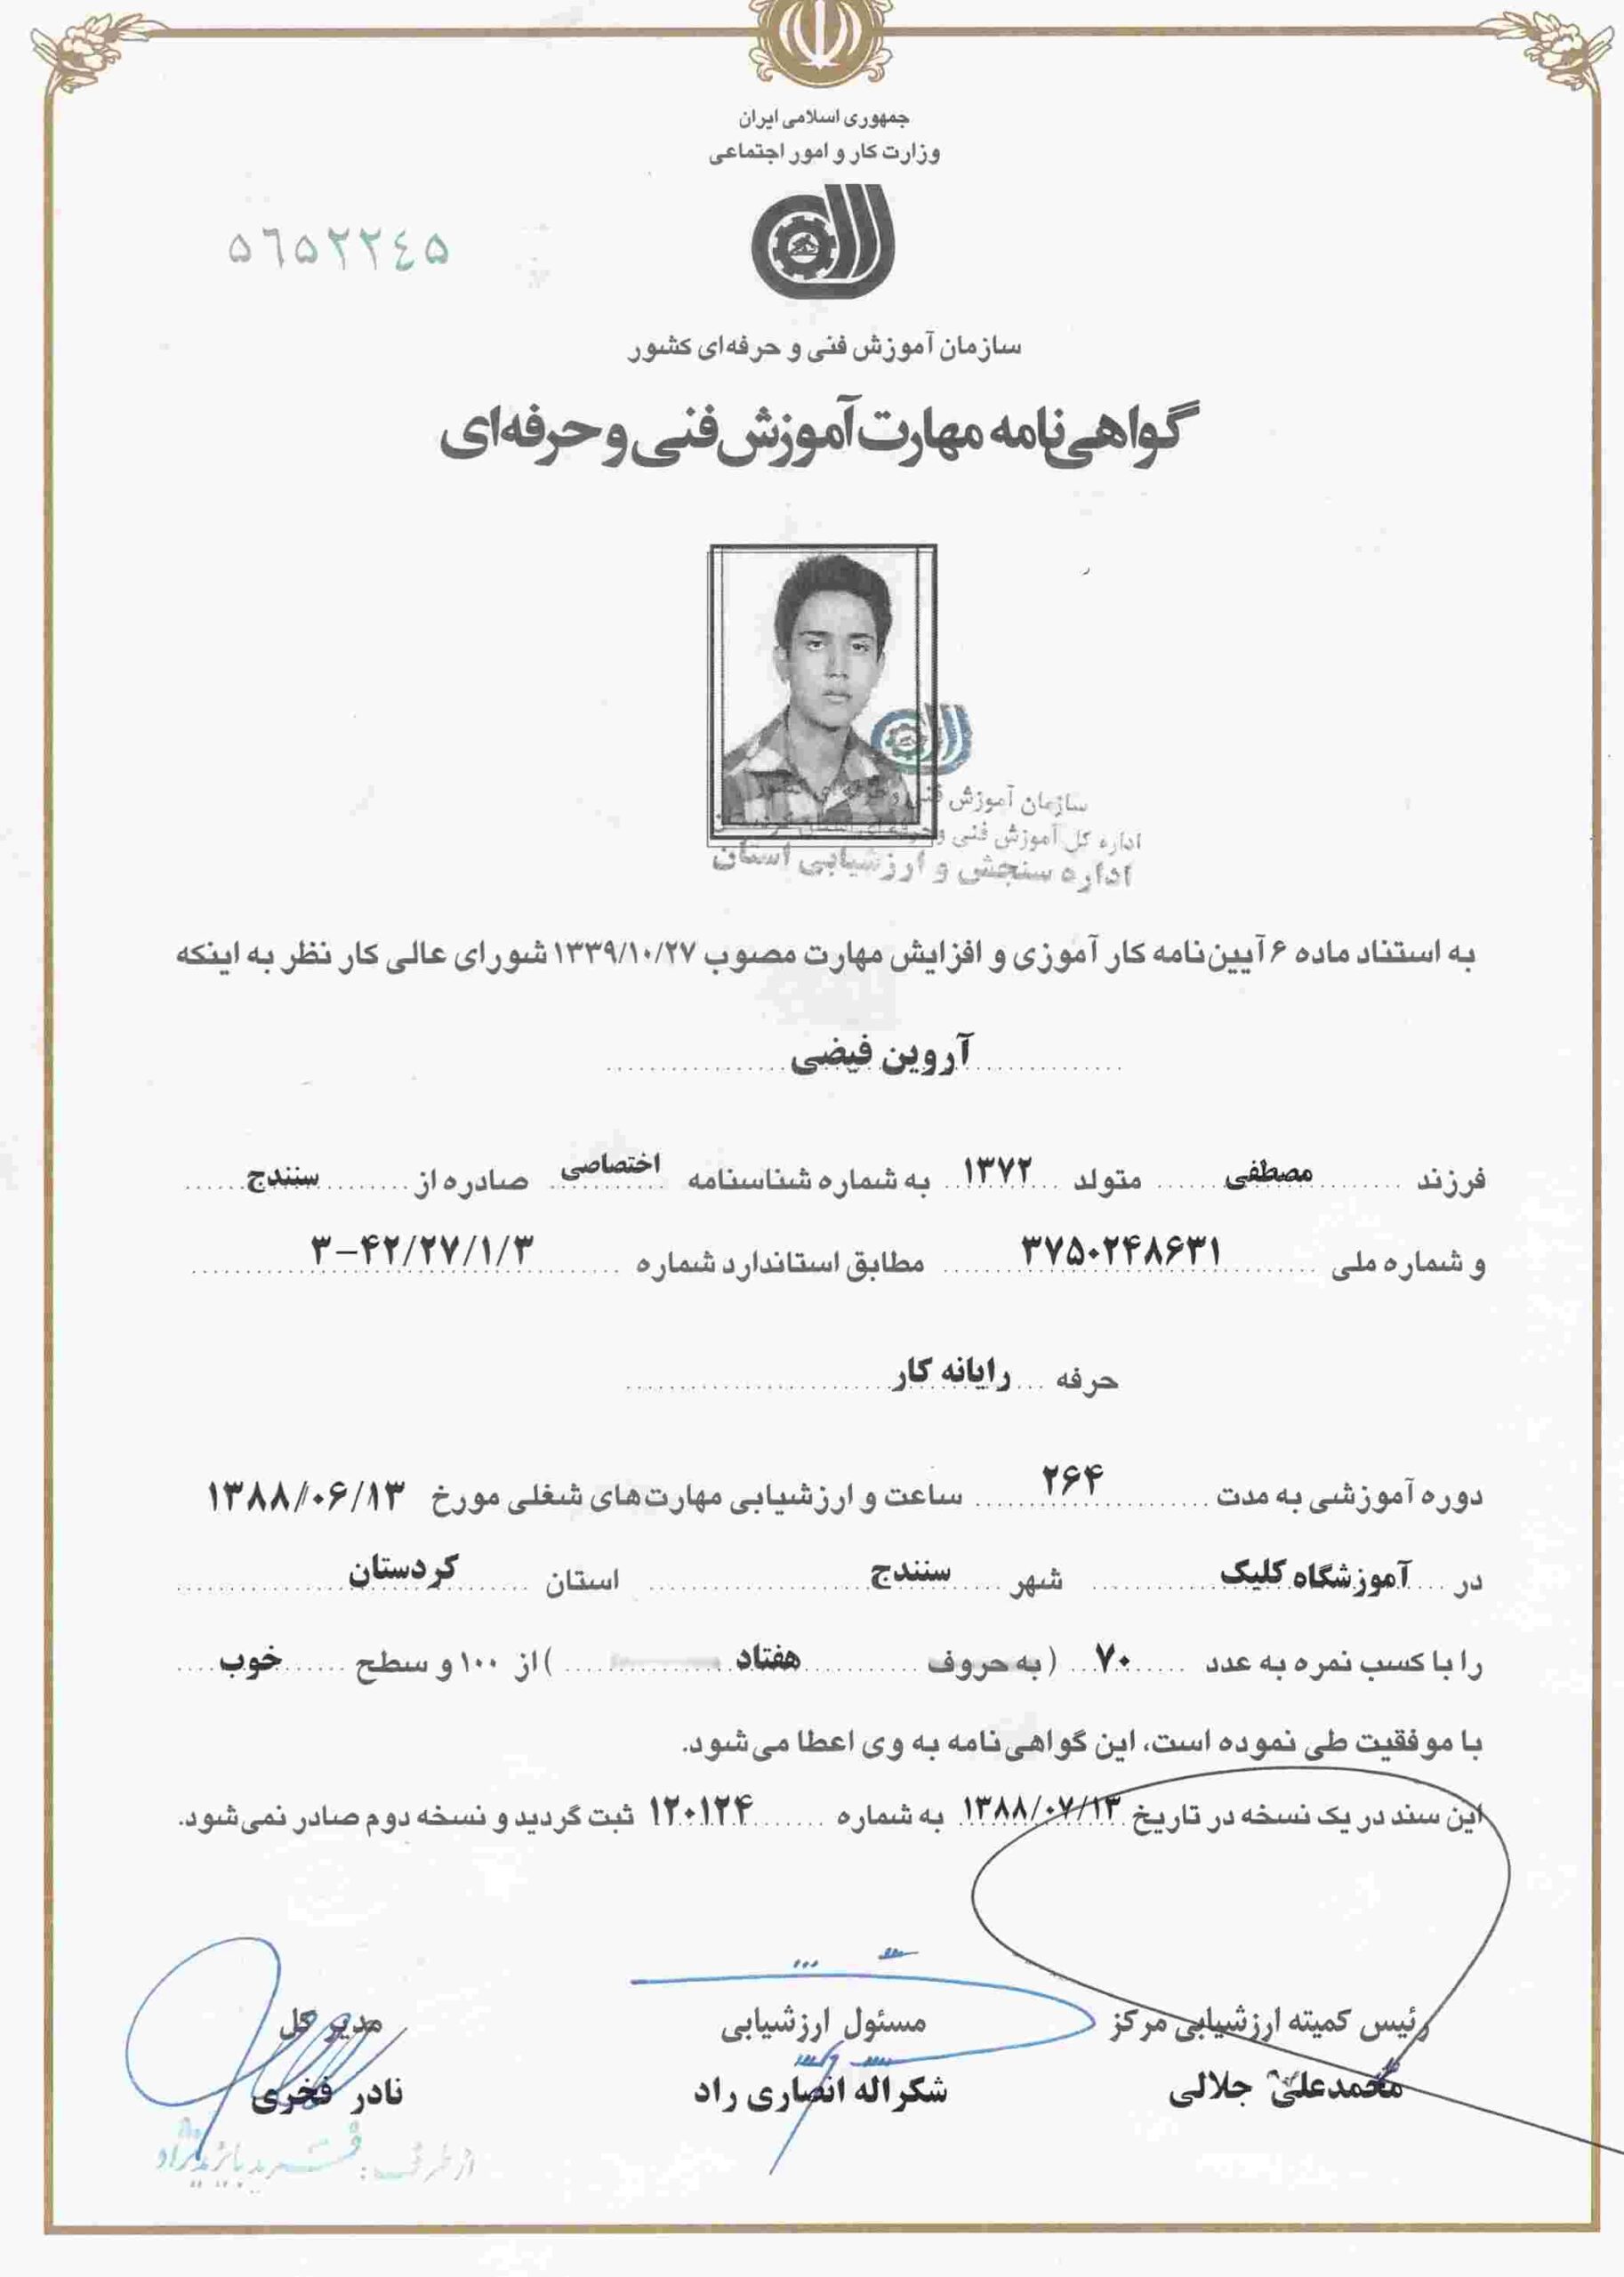 جمهوری اسلامی ایران
وزارت کار و امور اجتماعی
۵۶۵۲۲۴۵
سازمان آموزش فنی و حرفه‌ای کشور
گواهی‌نامه مهارت آموزش فنی و حرفه‌ای
سازمان آموزش فنی و حرفه ای کشور
اداره کل آموزش فنی و حرفه ای استان کردستان
اداره سنجش و ارزشیابی استان
به استناد ماده ۶ آیین‌نامه کار آموزی و افزایش مهارت مصوب ۱۳۳۹/۱۰/۲۷ شورای عالی کار نظر به اینکه
آروین فیضی
فرزند مصطفی متولد ۱۳۷۲ به شماره شناسنامه اختصاصی صادره از سنندج
و شماره ملی ۳۷۵۰۲۴۸۶۳۱ مطابق استاندارد شماره ۳-۴۲/۲۷/۱/۳
حرفه رایانه کار
دوره آموزشی به مدت ۲۶۴ ساعت و ارزشیابی مهارت‌های شغلی مورخ ۱۳۸۸/۰۶/۱۳
در آموزشگاه کلیک شهر سنندج استان کردستان
را با کسب نمره به عدد ۷۰ (به حروف هفتاد) از ۱۰۰ و سطح خوب
با موفقیت طی نموده است، این گواهی‌نامه به وی اعطا می‌شود.
این سند در یک نسخه در تاریخ ۱۳۸۸/۰۷/۱۳ به شماره ۱۲۰۱۲۴ ثبت گردید و نسخه دوم صادر نمی‌شود.
رئیس کمیته ارزشیابی مرکز مسئول ارزشیابی مدیر کل
محمدعلی جلالی شکراله انصاری راد نادر فخری
از طرف :